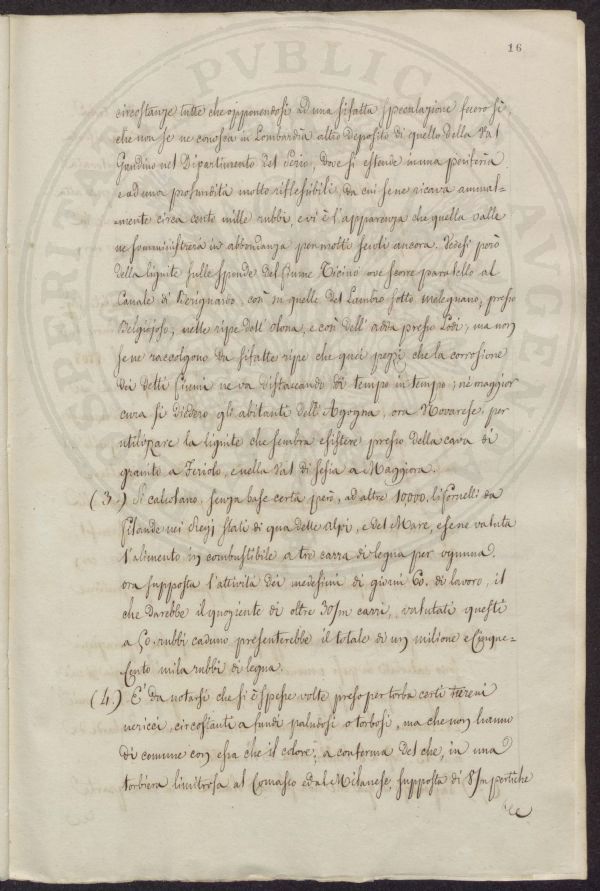 16
circostanze tutte che opponendosi ad una sifatta speculazione fecero sì,
che non se ne conosca in Lombardia altro deposito di quello della Val
Gandino nel Dipartimento del Serio, dove si estende in una periferia
e ad una profondità molto riflessibili, da cui se ne ricava annual=
=mente circa cento mille rubbi, e vi è l'apparenza che quella valle
ne somministrerà in abbondanza per molti secoli ancora. Vedesi però
della lignite sulle sponde del fiume Ticino ove scorre paralello al
Canale di Bereguardo, così in quelle del Lambro sotto Melegnano, presso
Belgiojoso, nelle ripe dell'Olona, e così dell'Adda presso Lodi, ma non
se ne raccolgono da sifatte ripe che quei pezzi che la corrosione
dei detti fiumi ne va distaccando di tempo in tempo; nè maggior
cura si diedero gli abitanti dell'Agogna, ora Novarese, per
utilizzare la lignite che sembra esistere presso della cava di
granito a Feriolo, e nella Val di Sesia a Maggiora.
(3.) Si calcolano, senza base certa però, ad altre 10000. li fornelli da
filande nei Regj Stati di qua delle alpi, e del Mare, essene valuta
l'alimento in combustibile a tre carra di legna per ognuna.
ora supposta l'attività dei medesimi di giorni 60. di lavoro, il
che darebbe il quoziente di oltre 30/m carri, valutati questi
a 50. rubbi caduno presenterebbe il totale di un milione e Cinque=
Cento mila rubbi di legna.
(4.) E' da notarsi che si è spesse volte preso per torba certi terreni
nericci, circostanti a fundi paludosi o torbosi, ma che non hanno
di comune con essa che il colore; a conferma del che, in una
torbiera limitrofa al Comasco ed al Milanese, supposta di 8/m pertiche